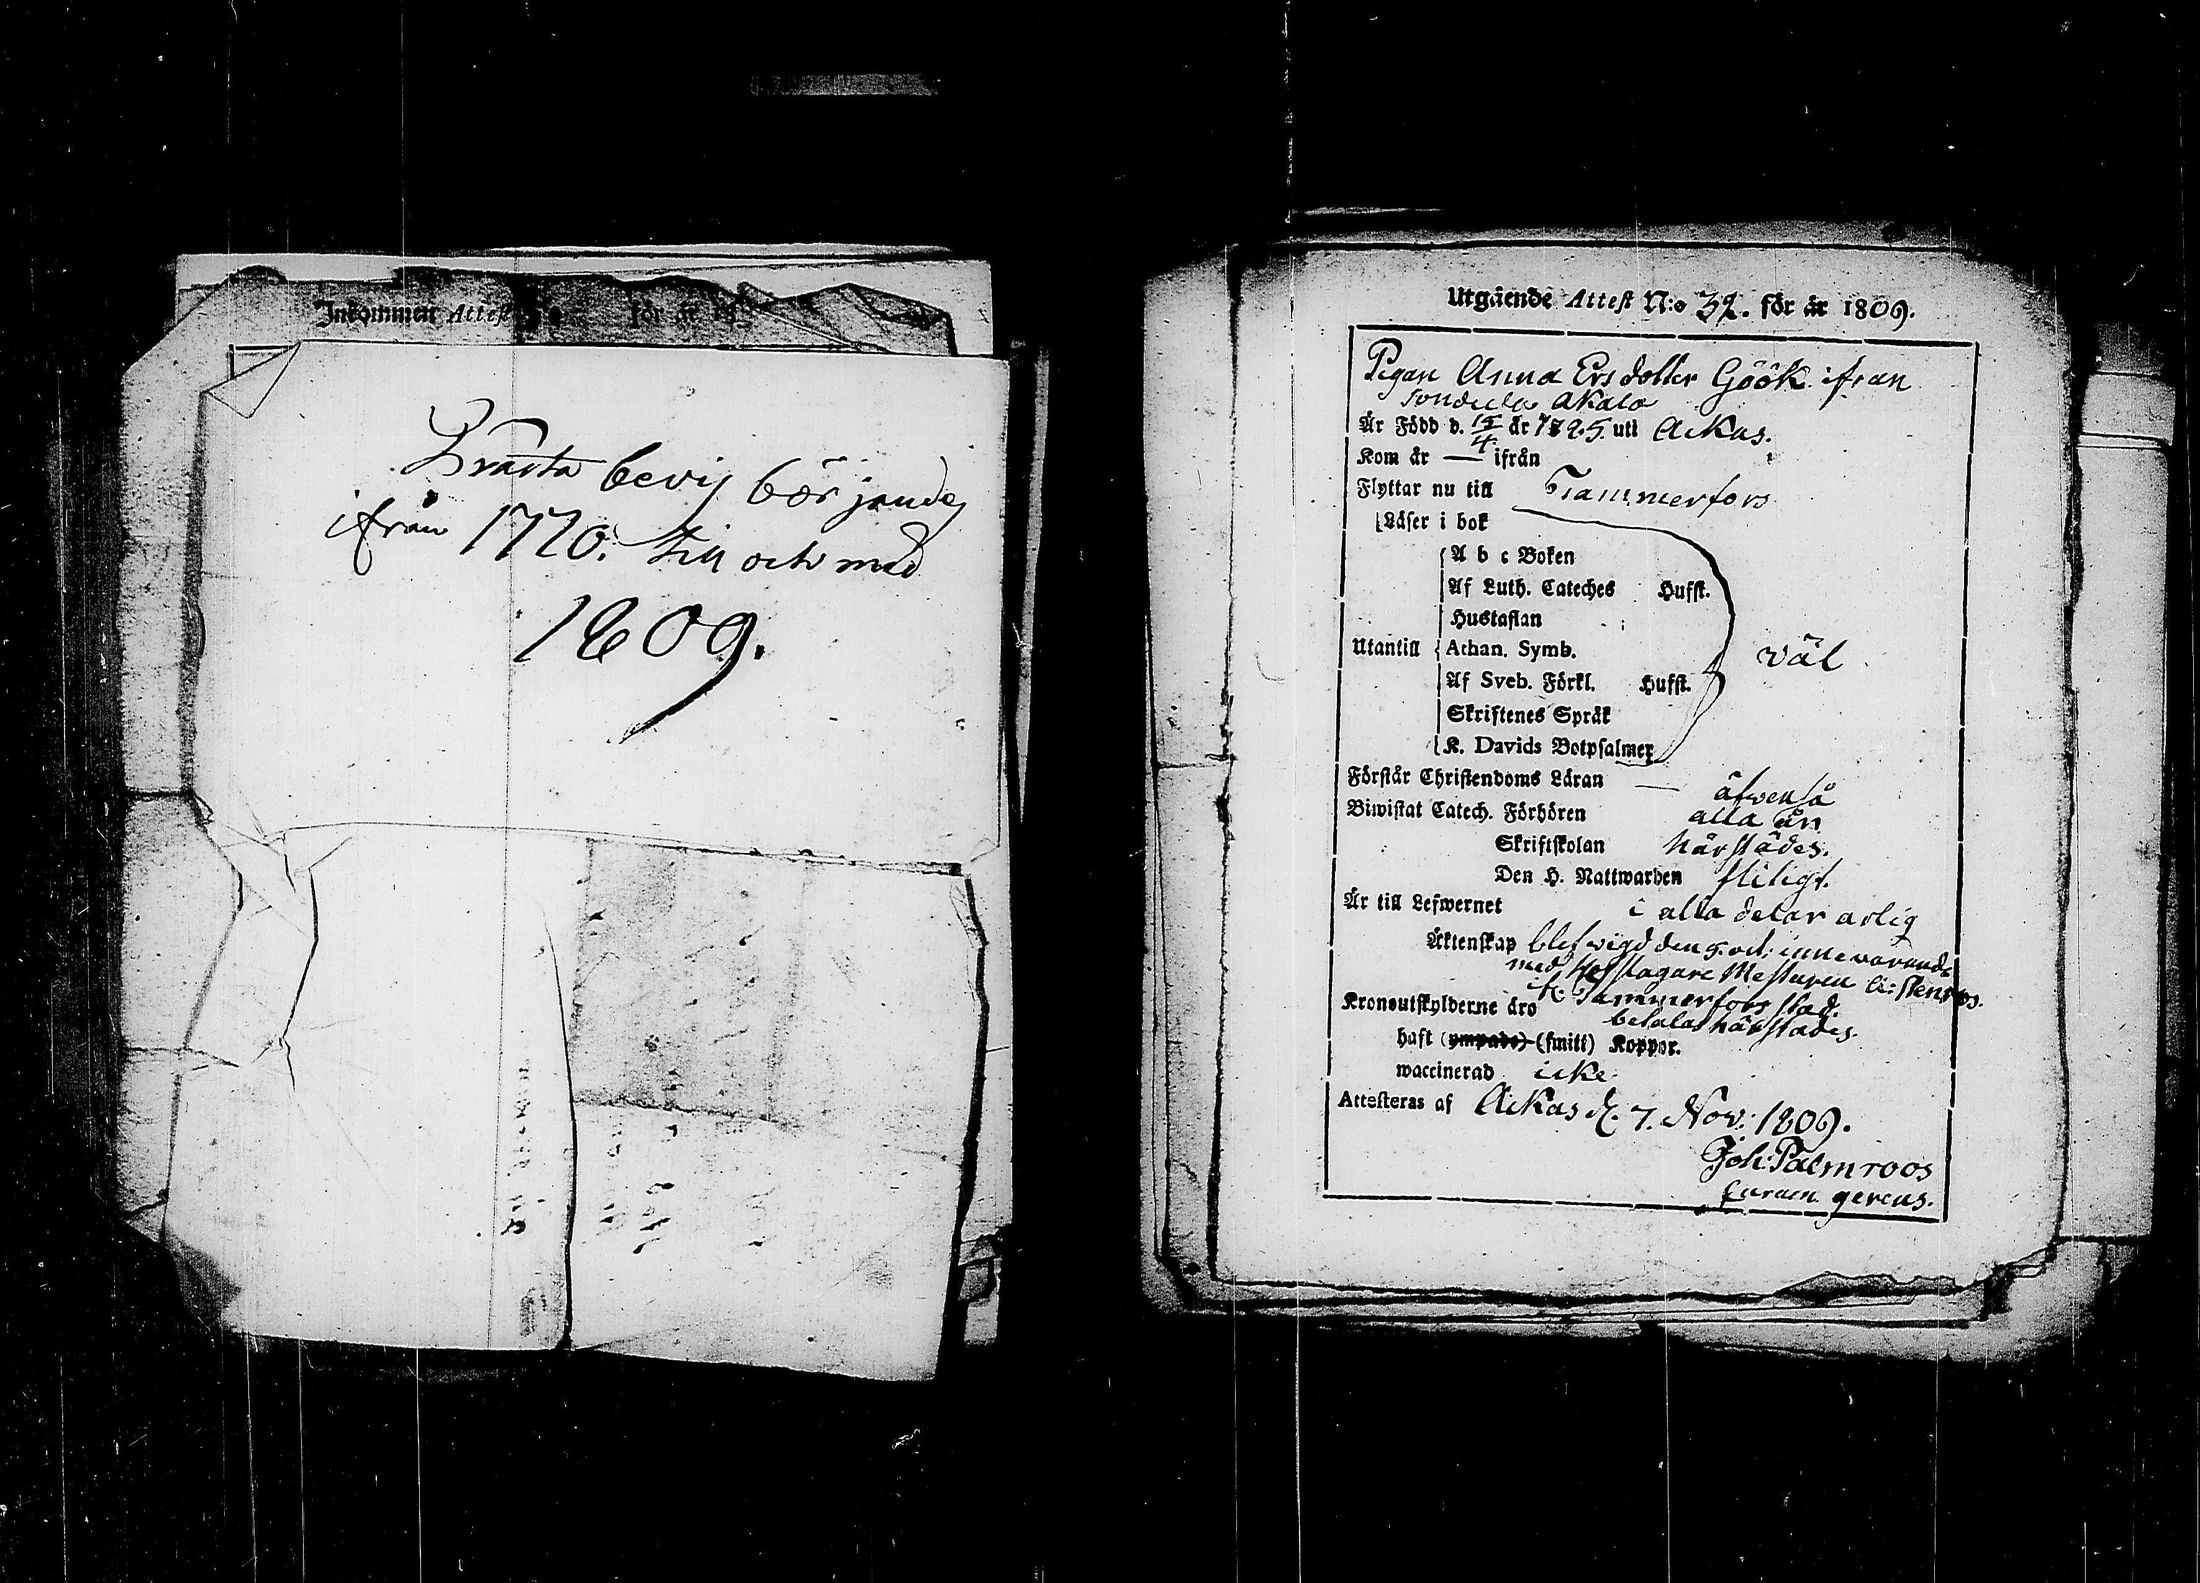 Inkommen Attest för år 18
Präste bevis börjandes
ifrån 1770. till och med
1809.
Utgående Attest N:o 32. för år 1809.
Pigan Anna Ersdotter Göök ifrån
Akala
Är Född d. 15/4 år 1785. uti Ackas.
Kom år — ifrån
Flyttar nu till Tammerfors
Läser i bok
A b c Boken
Af Luth. Cateches Hufst.
Hustaflan
Utantill Athan. Symb. väl
Af Sveb. Förkl. Hufst.
Skriftenes Språk
K. Davids Botpsalmer
Förstår Christendoms Läran — äfvenså
Biwistat Catech. Förhören alla år
Skriftskolan härstädes.
Den H. Nattwarden flitigt.
Är till Lefwernet i alla delar ärlig
Äktenskap blef wigd den 5. oct: innevarande
med
i Tammerfors stad.
Kronoutskylderne äro betalas härstädes.
haft (ympade) (smitt) Koppor.
waccinerad icke
Attesteras af Ackas d. 7. Nov: 1809.
Joh: Palmroos
curam gerens.